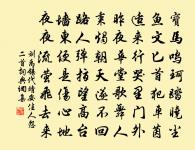 寶馬鳴珂踏曉塵
魚文匕首犯車茵
適來行哭里門外
昨夜華堂歌舞人
秉燭朝天遂不回
路人彈指望高台
墻東便是傷心地
夜夜流螢飛去來
劉禹錫代靖安佳人怨
二首詞典網集